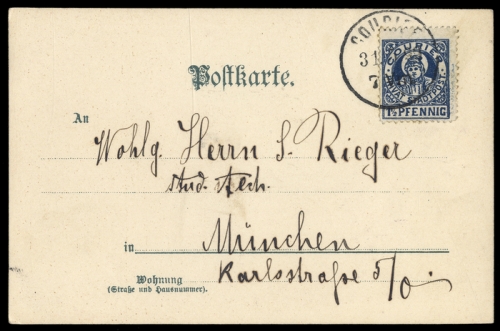 COURIER
31
7
COURIER
PRIVAT-STADTPOST
1½ PFENNIG
Postkarte.
An
Wohlg. Herrn S. Rieger
stud. tech.
in München
Wohnung Karlsstraße 5/0.
(Straße und Hausnummer).